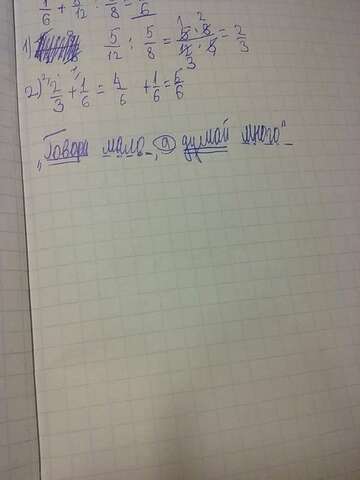 1/6 + 5/12 : 5/8 = 5/6
1) 5/12 : 5/8 = 5·8/12·5 = 2/3
2) 2/3 + 1/6 = 4/6 + 1/6 = 5/6
„Говори мало, а думай много"